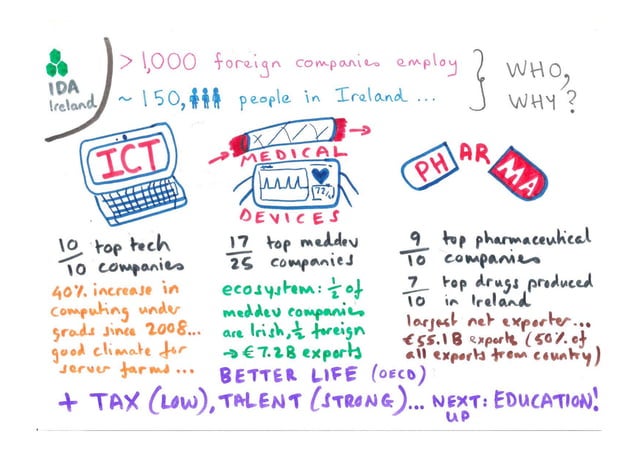 IDA
Ireland
> 1,000 foreign companies employ
~ 150, people in Ireland ...
WHO,
WHY?
ICT
MEDICAL
DEVICES
PHARMA
10/10 top tech
companies
40% increase in
computing under
grads since 2008...
good climate for
server farms ...
17/25 top meddev
companies
ecosystem: ½ of
meddev companies
are Irish, ½ foreign
→ €7.2B exports
9/10 top pharmaceutical
companies
7/10 top drugs produced
in Ireland
largest net exporter...
€55.1B exports (50% of
all exports from country)
BETTER LIFE (OECD)
+ TAX (LOW), TALENT (STRONG)... NEXT: EDUCATION!
UP